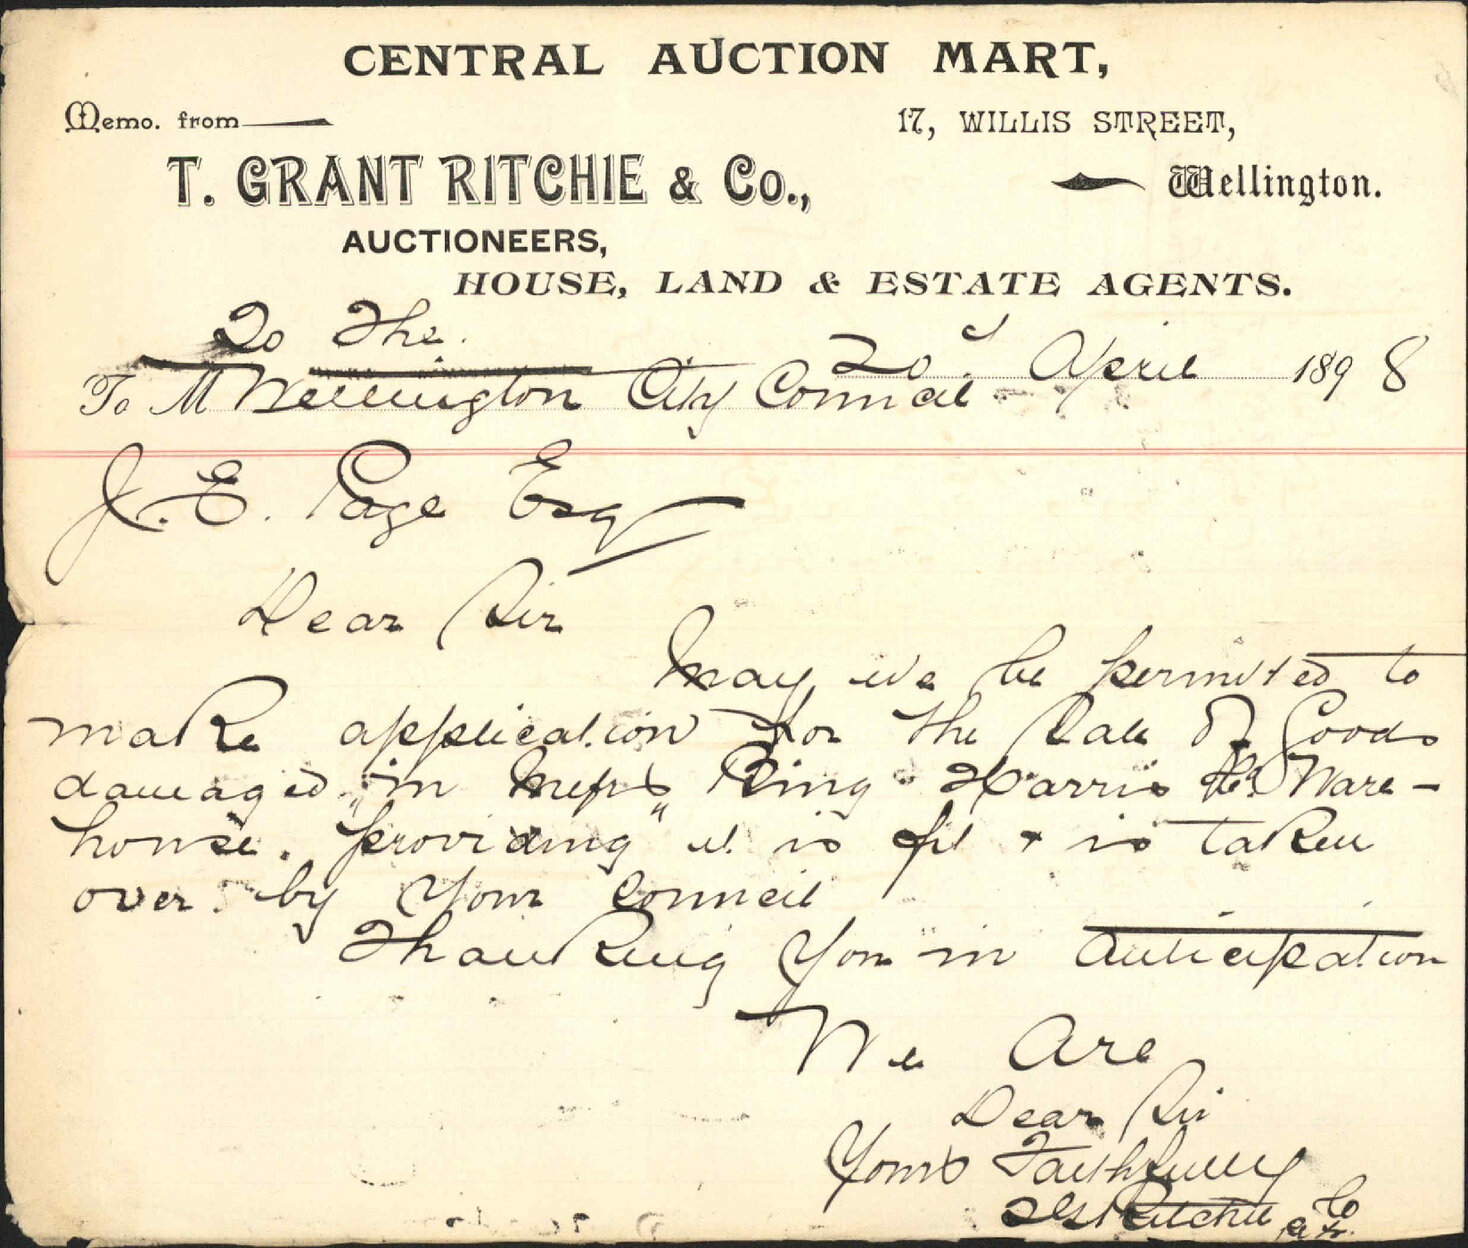 CENTRAL AUCTION MART,
Memo. from
17, WILLIS STREET,
T. GRANT RITCHIE & Co.,
Wellington.
AUCTIONEERS,
HOUSE, LAND & ESTATE AGENTS.
To The
20 April 1898
To M Wellington City Council
J. E. Page Esq
Dear Sir
May we be permitted to
make application for the Sale of Goods
damaged in Messrs King Harris Ware-
house. "providing" it is fit & is taken
over by Your Council
Thanking You in Anticipation
We Are
Dear Sir
Yours Faithfully
T G Ritchie & Co